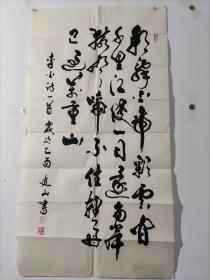 朝辭白帝彩雲間
千里江陵一日還兩岸
猿聲啼不住輕舟
已過萬重山
李白詩一首 歲次乙酉 山書